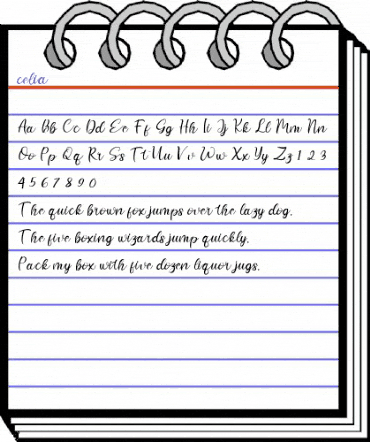 celia
Aa Bb Cc Dd Ee Ff Gg Hh Ii Jj Kk Ll Mm Nn
Oo Pp Qq Rr Ss Tt Uu Vv Ww Xx Yy Zz 1 2 3
4 5 6 7 8 9 0
The quick brown fox jumps over the lazy dog.
The five boxing wizards jump quickly.
Pack my box with five dozen liquor jugs.